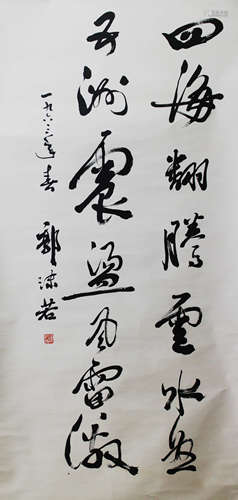 四海翻騰雲水怒
五洲震盪风雷激
一九六三年春
郭沫若